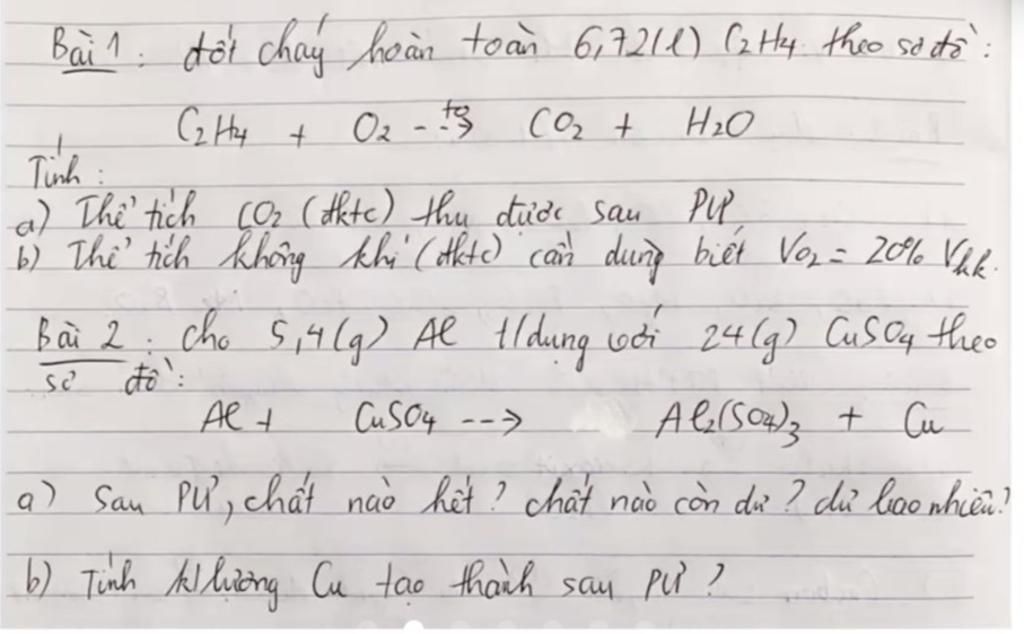 Bài 1 : đốt cháy hoàn toàn 6,72(l) C2H4 theo sơ đồ :
C2H4 + O2 --to→ CO2 + H2O
Tính :
a) Thể tích CO2 (đktc) thu được sau PƯ
b) Thể tích không khí (đktc) cần dùng biết VO2 = 20% Vkk.
Bài 2 : Cho 5,4(g) Al t/dụng với 24(g) CuSO4 theo
sơ đồ :
Al + CuSO4 ---> Al2(SO4)3 + Cu
a) Sau PƯ, chất nào hết ? chất nào còn dư ? dư bao nhiêu ?
b) Tính k/lượng Cu tạo thành sau PƯ ?